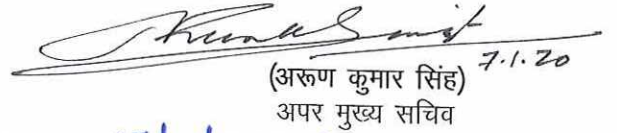 7.1.20
(अरूण कुमार सिंह)
अपर मुख्य सचिव